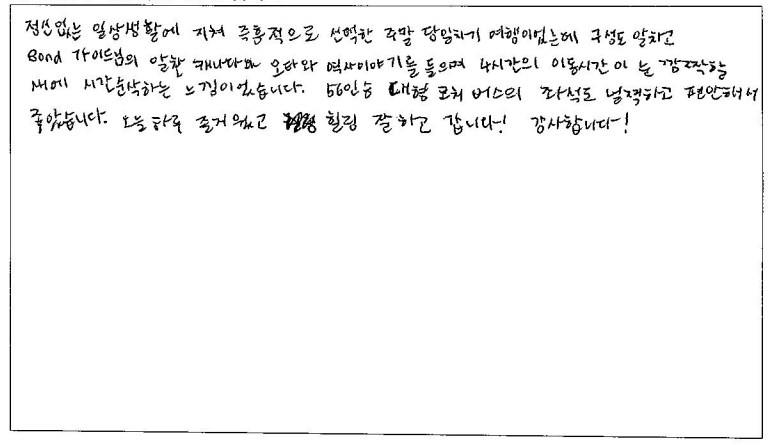 정신없는 일상생활에 지쳐 즉흥적으로 선택한 주말 당일치기 여행이었는데 구성도 알차고
Bond 가이드님의 알찬 캐나다와 오타와 역사이야기를 들으며 4시간의 이동시간이 눈 깜짝할
새에 시간순삭하는 느낌이었습니다. 56인승 대형 코치 버스의 좌석도 널찍하고 편안해서
좋았습니다. 오늘 하루 즐거웠고 힐링 잘 하고 갑니다! 감사합니다!